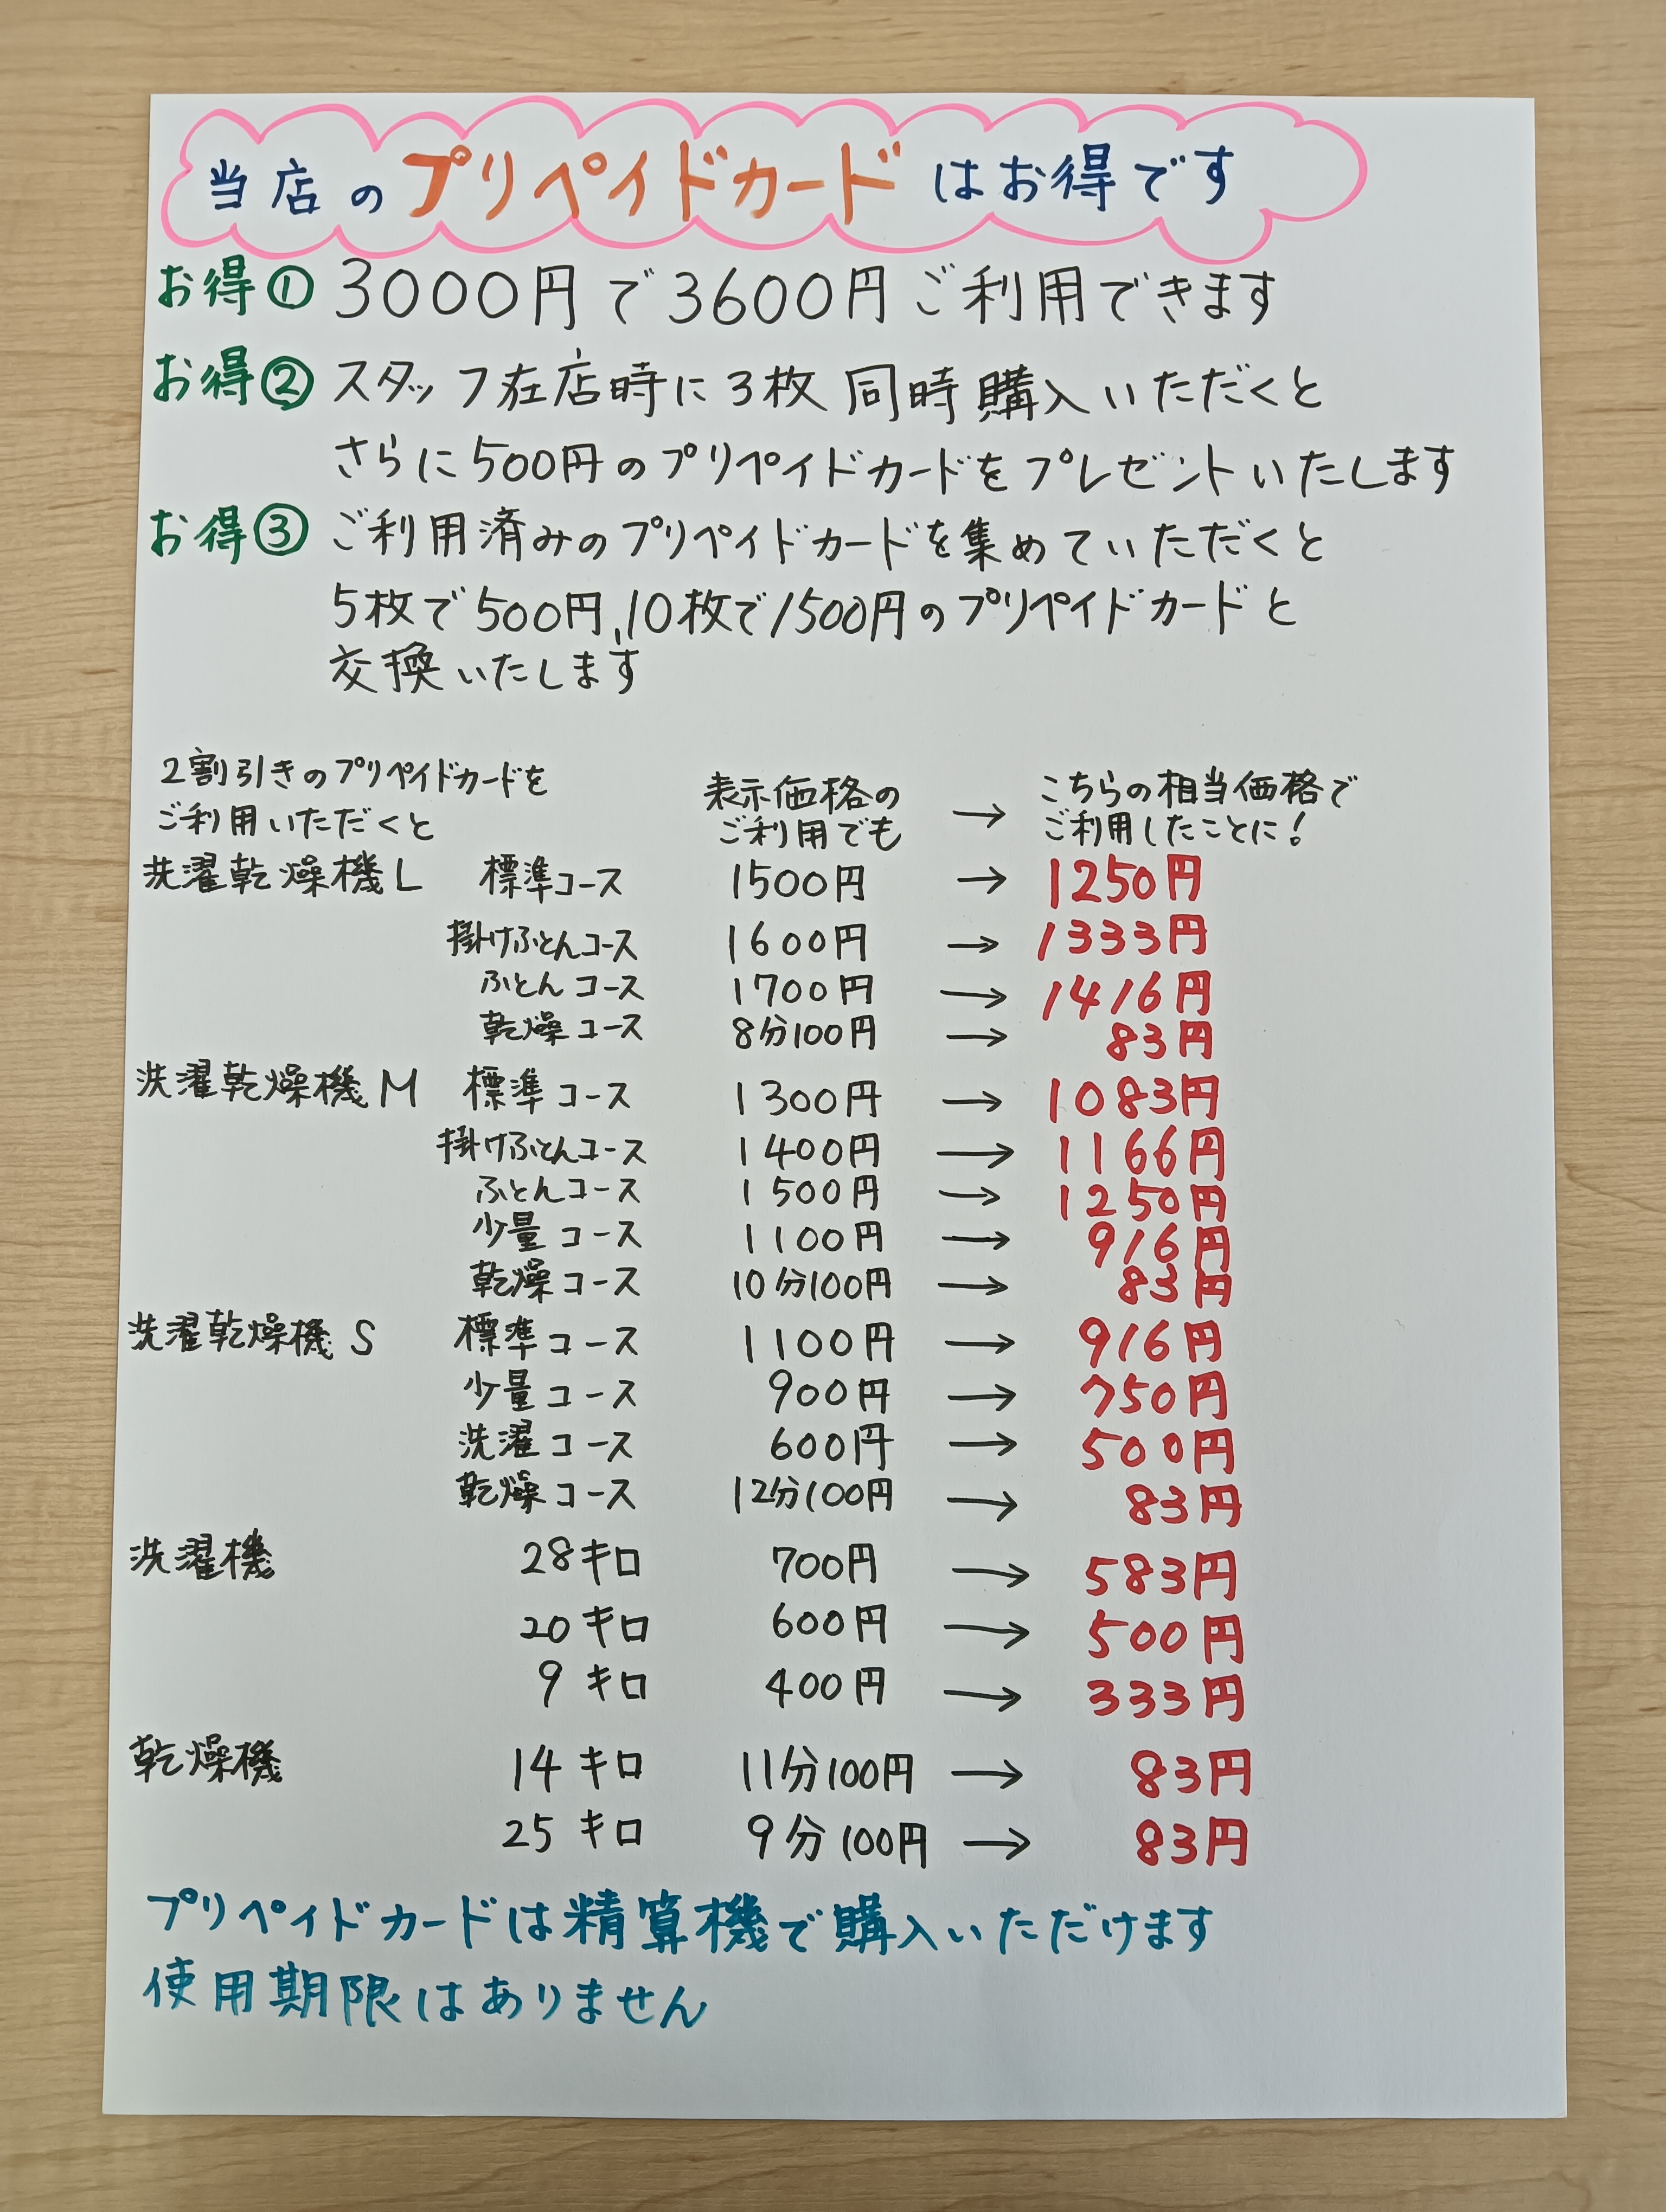 当店のプリペイドカードはお得です
お得① 3000円で3600円ご利用できます
お得② スタッフ在店時に3枚同時購入いただくと
さらに500円のプリペイドカードをプレゼントいたします
お得③ ご利用済みのプリペイドカードを集めていただくと
5枚で500円、10枚で1500円のプリペイドカードと
交換いたします
2割引きのプリペイドカードを
ご利用いただくと
表示価格の
ご利用でも
→
こちらの相当価格で
ご利用したことに!
洗濯乾燥機L 標準コース 1500円 → 1250円
掛けふとんコース 1600円 → 1333円
ふとんコース 1700円 → 1416円
乾燥コース 8分100円 → 83円
洗濯乾燥機M 標準コース 1300円 → 1083円
掛けふとんコース 1400円 → 1166円
ふとんコース 1500円 → 1250円
少量コース 1100円 → 916円
乾燥コース 10分100円 → 83円
洗濯乾燥機S 標準コース 1100円 → 916円
少量コース 900円 → 750円
洗濯コース 600円 → 500円
乾燥コース 12分100円 → 83円
洗濯機 28キロ 700円 → 583円
20キロ 600円 → 500円
9キロ 400円 → 333円
乾燥機 14キロ 11分100円 → 83円
25キロ 9分100円 → 83円
プリペイドカードは精算機で購入いただけます
使用期限はありません